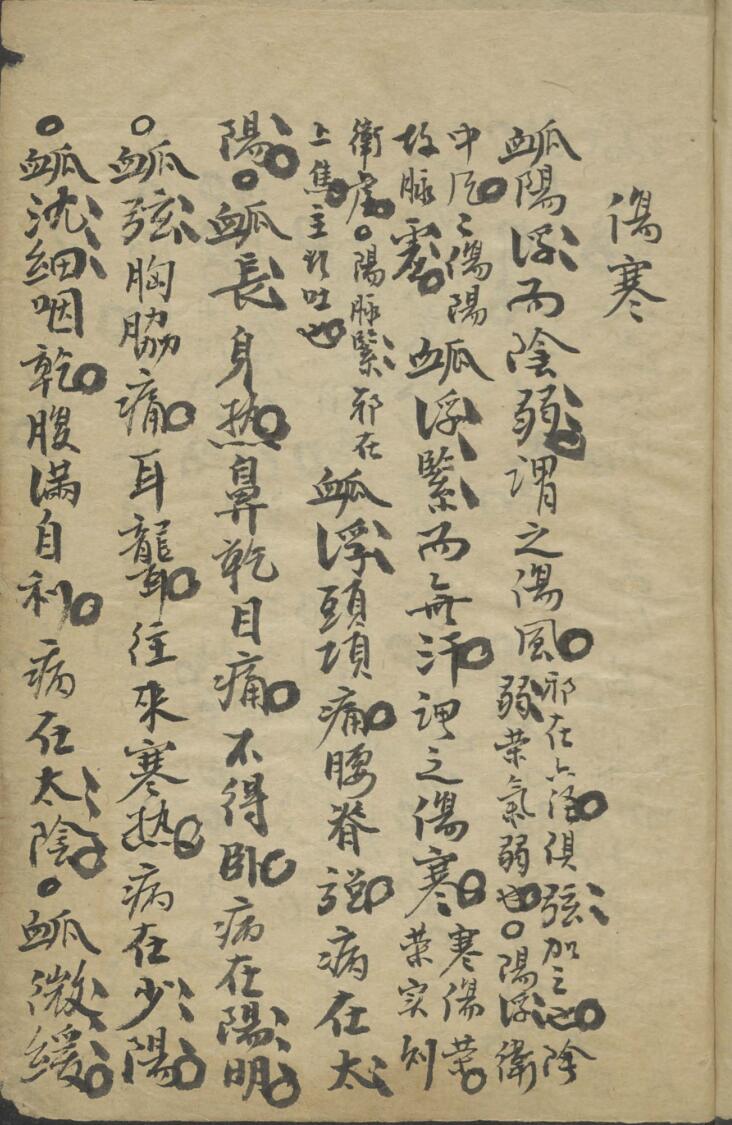 傷寒
䘑陽浮而陰弱謂之傷風
邪在六經俱弦加之 陰
弱荣氣弱也○陽浮衛
中风〻傷陽
故脉
䘑浮緊而無汗謂之傷寒
寒傷荣
荣实则
衛虚○陽脉緊邪在
上焦主於吐也
䘑浮頭項痛腰脊強病在太
陽○䘑長身热鼻乾目痛不得卧病在陽明
○䘑弦胸脇痛耳聾往來寒热病在少陽
○䘑沈細咽乾腹滿自利病在太陰○䘑微緩